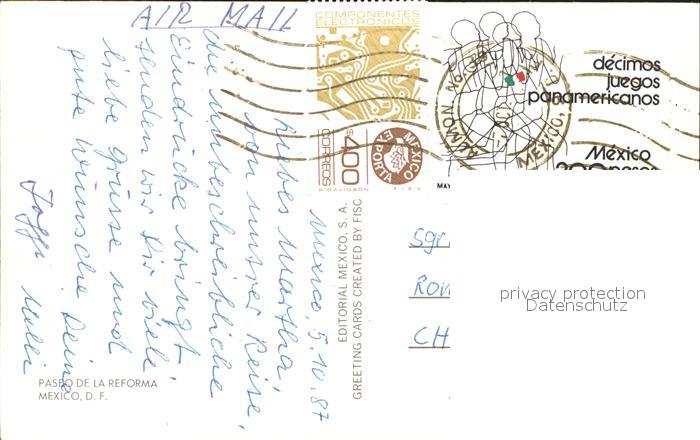 AIR MAIL
COMPONENTES
ELECTRONICOS
$400
CORREOS
MEXICO
EXPORTA
R. DAVIDSON T.I.E.V.
décimos
juegos
panamericanos
México
200 pesos
MEXICO, D. F.
MAY
Mexico, 5.10.87
Liebes Martha,
von unsrer Reise,
die unbeschreibliche
Eindrücke bringt,
senden wir Dir viele
liebe Grüsse und
gute Wünsche Deine
EDITORIAL MEXICO, S. A.
GREETING CARDS CREATED BY FISC
Sgr.
CH
privacy protection
Datenschutz
PASEO DE LA REFORMA
MEXICO, D. F.